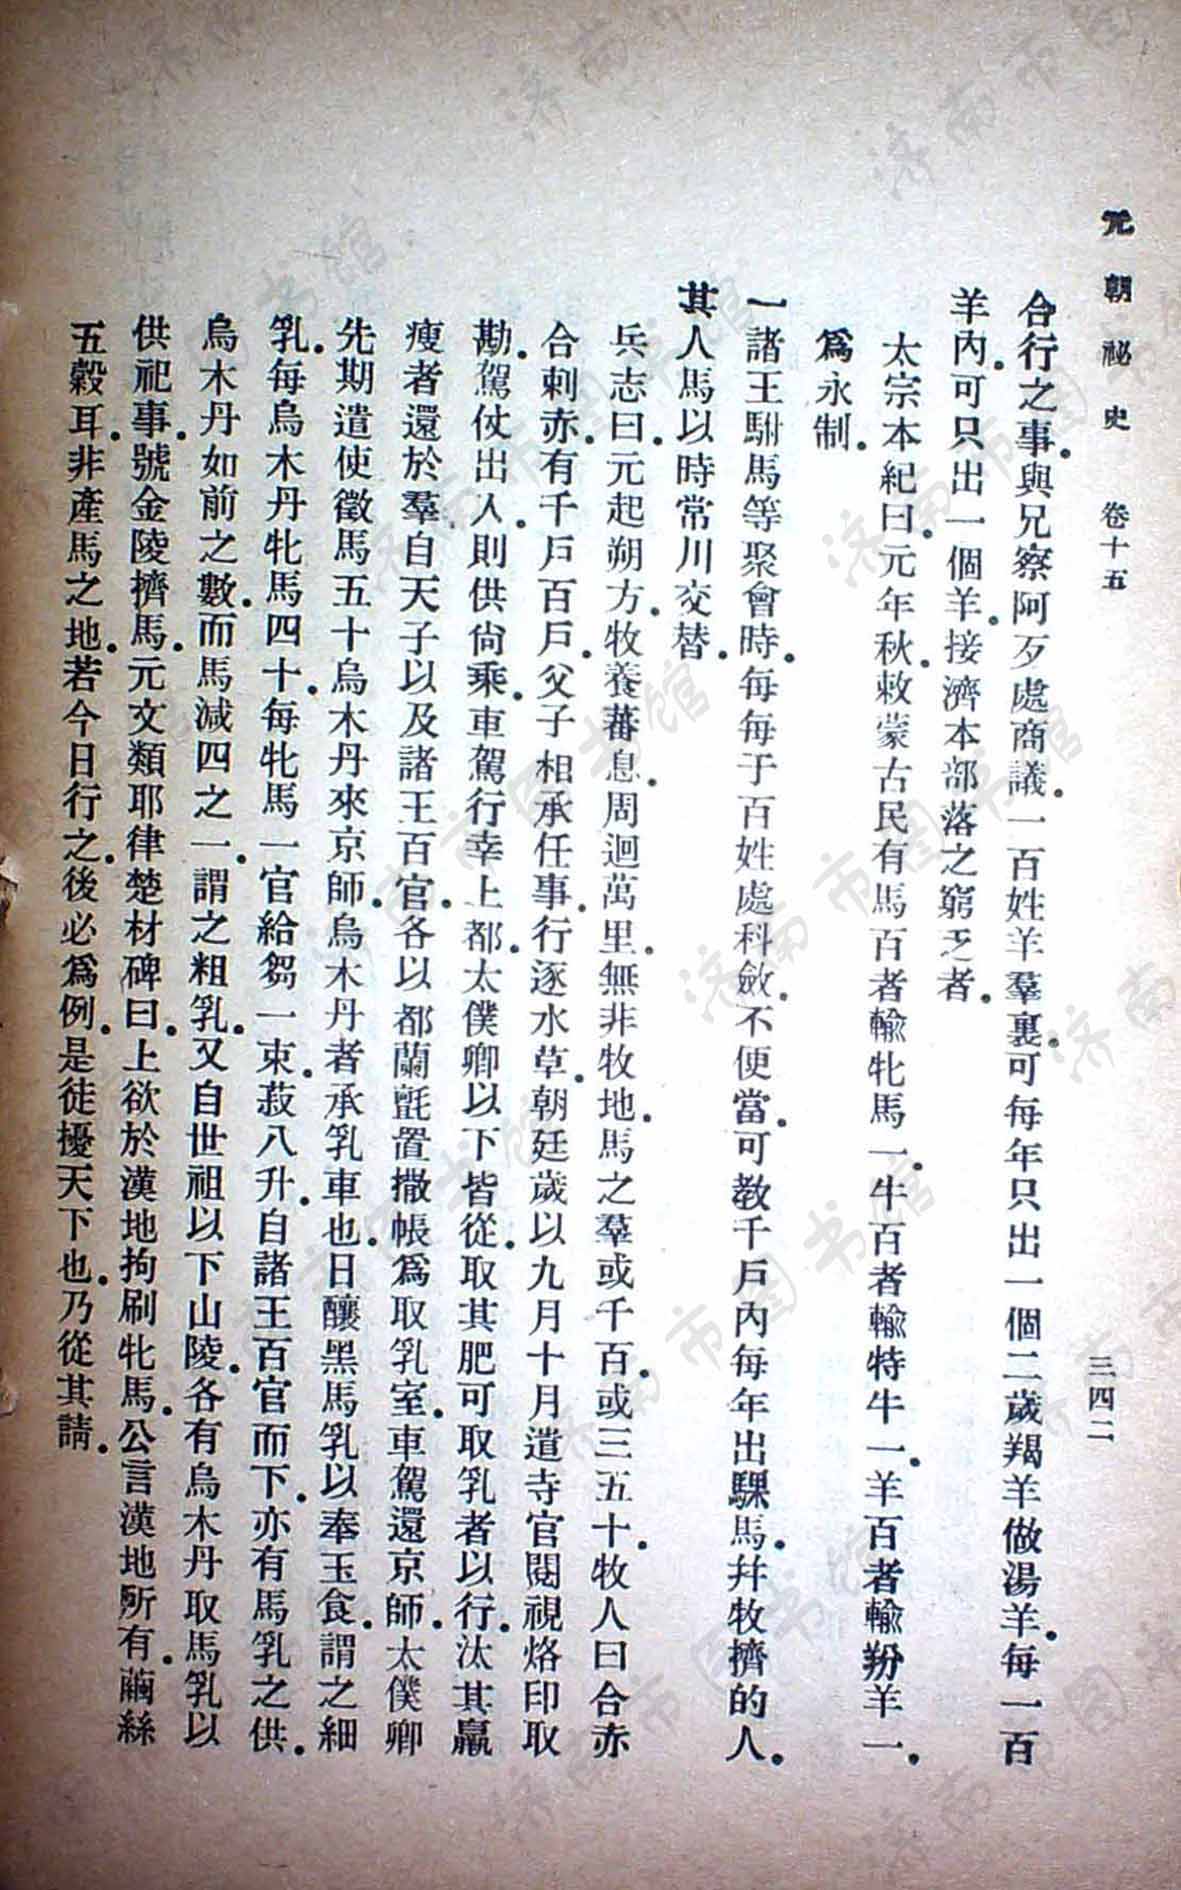 元朝祕史 卷十五 三四二
合行之事。與兄察阿歹處商議。一百姓羊羣裏。可每年只出一個二歲羯羊做湯羊。每一百
羊內。可只出一個羊。接濟本部落之窮乏者。
太宗本紀曰。元年秋。敕蒙古民有馬百者輸牝馬一。牛百者輸牸牛一。羊百者輸羒羊一。
爲永制。
一諸王駙馬等聚會時。每每于百姓處科斂。不便當。可教千戶內每年出騍馬。幷牧擠的人。
其人馬以時常川交替。
兵志曰。元起朔方。牧養蕃息。周迴萬里。無非牧地。馬之羣或千百。或三五十。牧人曰合赤
合剌赤。有千戶百戶。父子相承任事。行逐水草。朝廷歲以九月十月遣寺官閱視烙印取
勘。駕仗出入。則供尙乘。車駕行幸上都。太僕卿以下皆從。取其肥可取乳者以行。汰其羸
瘦者還於羣。自天子以及諸王百官。各以都蘭氈置撒帳爲取乳室。車駕還京師。太僕卿
先期遣使徵馬五十烏木丹來京師。烏木丹者承乳車也。日釀黑馬乳以奉玉食。謂之細
乳。每烏木丹牝馬四十。每牝馬一官給芻一束。菽八升。自諸王百官而下。亦有馬乳之供。
烏木丹如前之數。而馬減四之一。謂之粗乳。又自世祖以下山陵。各有烏木丹取馬乳以
供祀事。號金陵擠馬。元文類耶律楚材碑曰。上欲於漢地拘刷牝馬。公言漢地所有。繭絲
五穀耳。非產馬之地。若今日行之。後必爲例。是徒擾天下也。乃從其請。
济南市图书馆